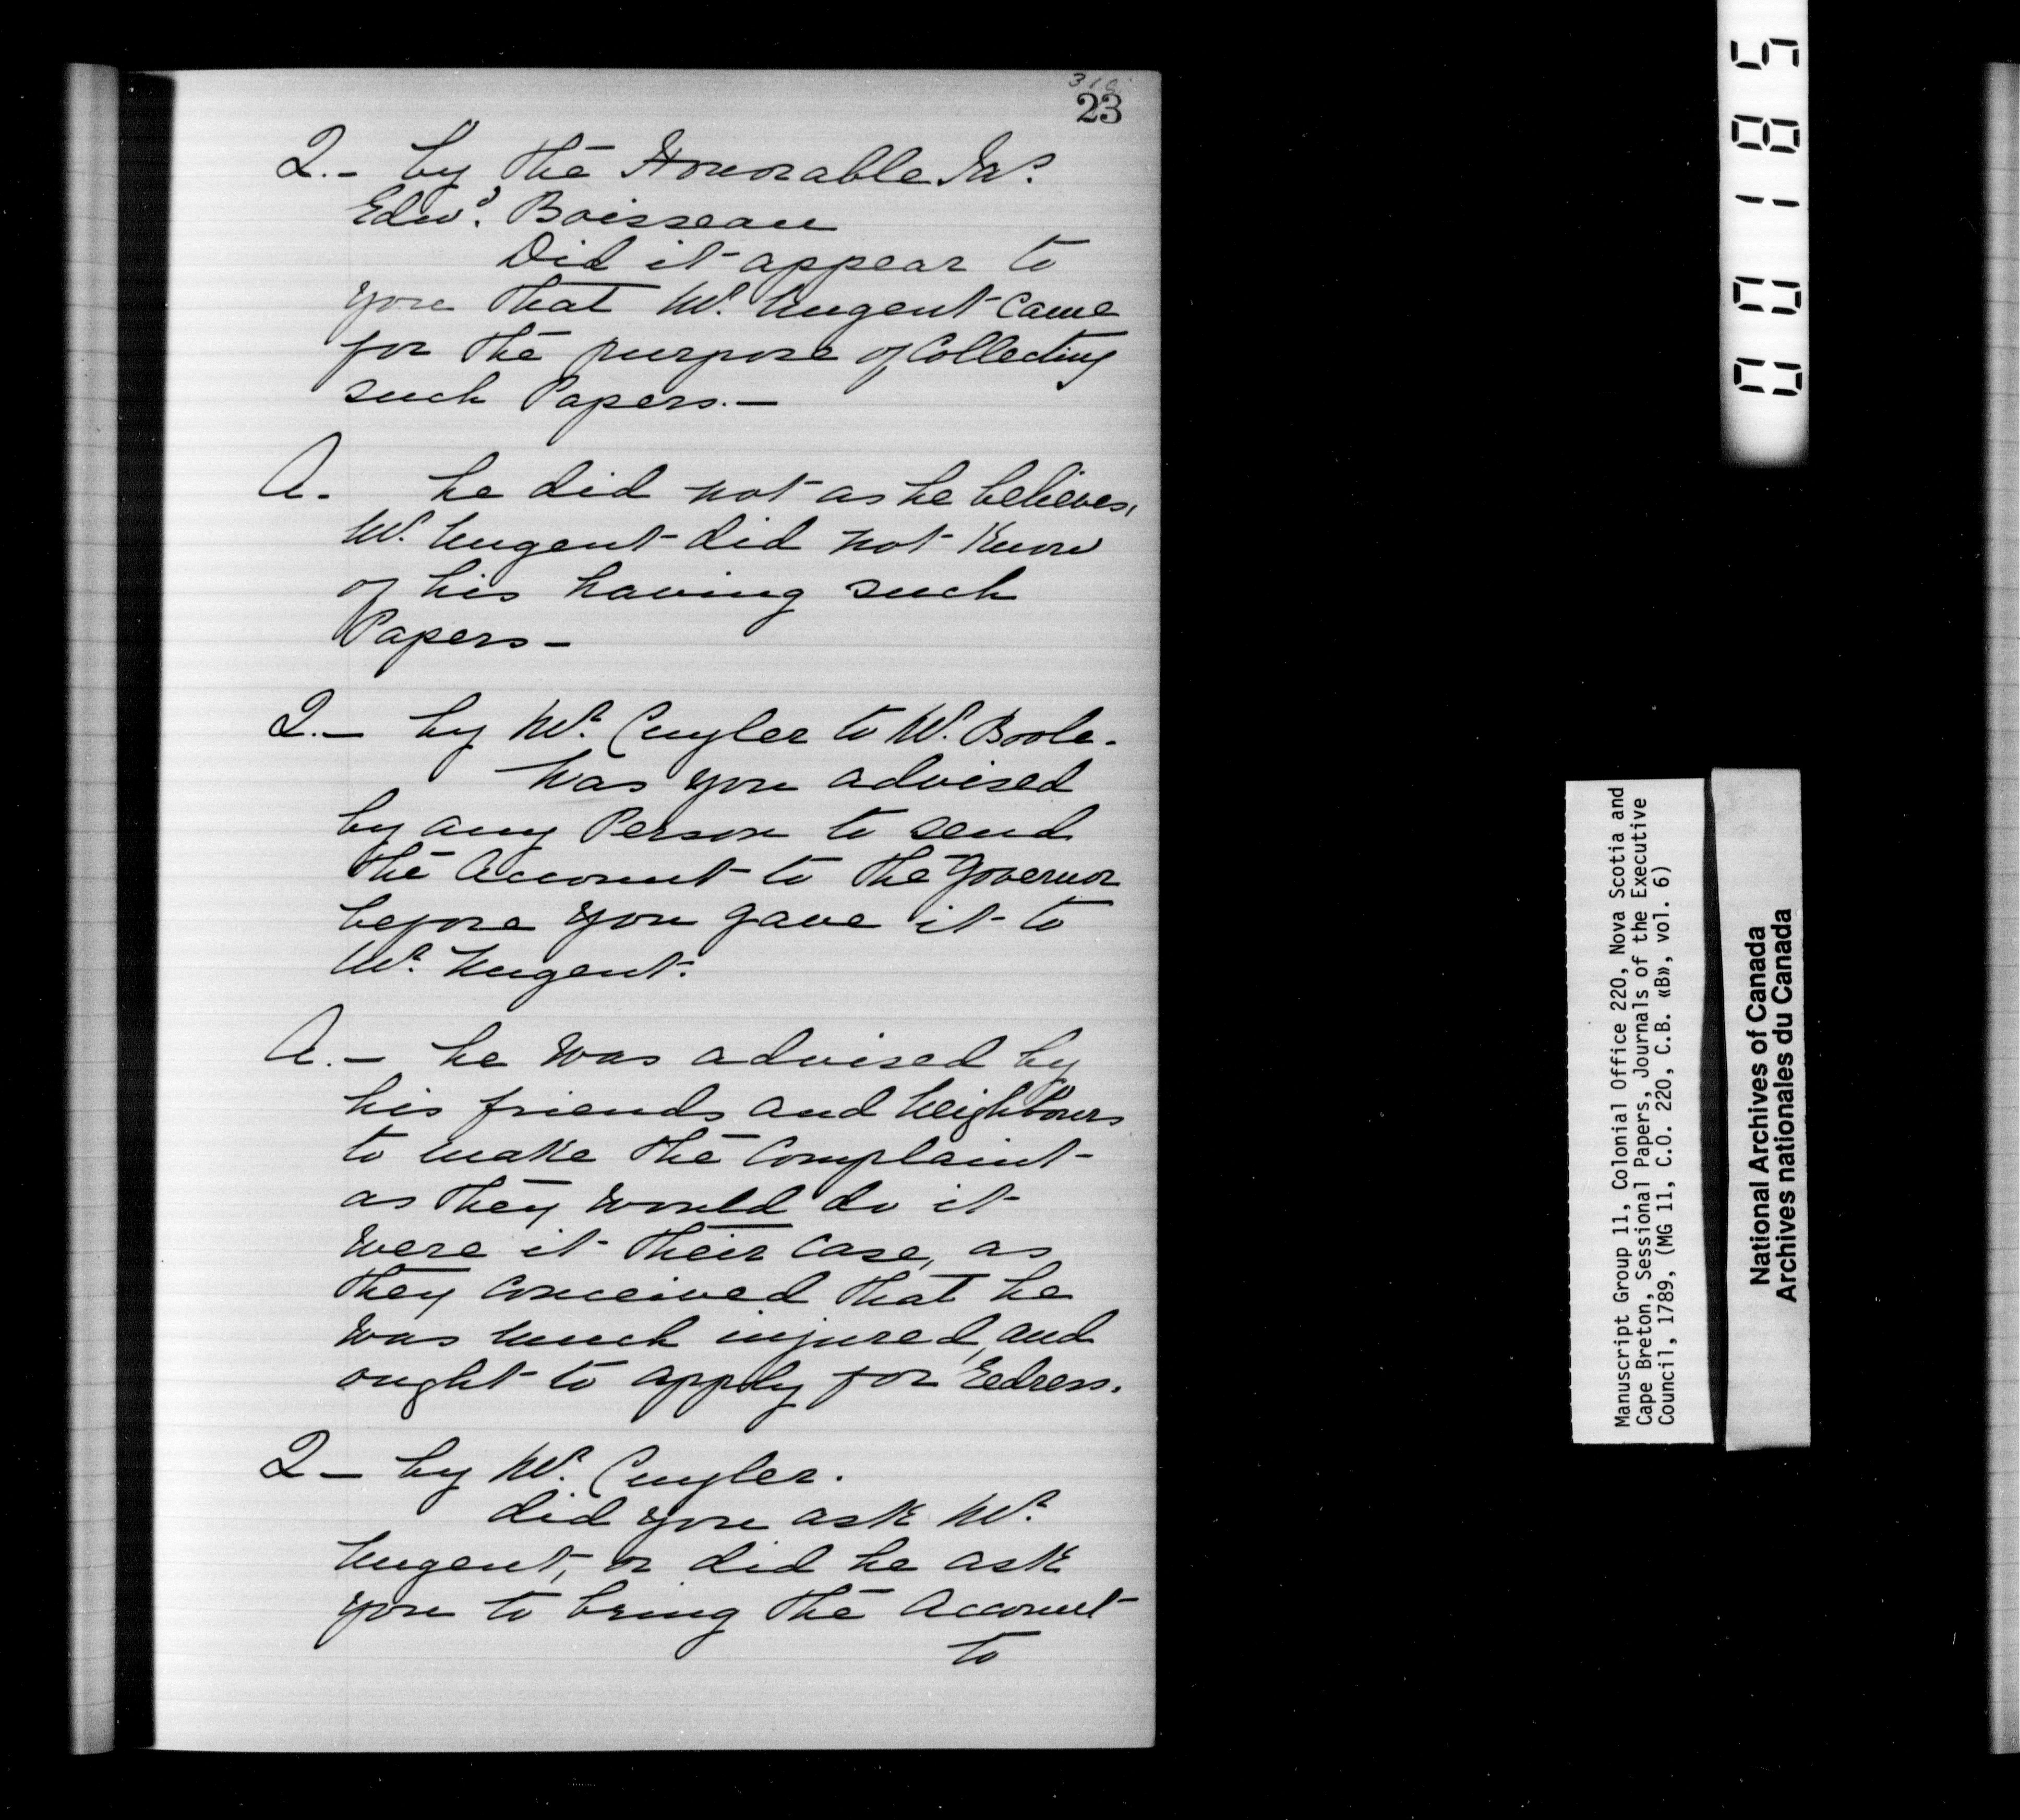 23
Q.- by the Honorable Mr.
Edwd. Boisseau
Did it appear to
you that Mr. Nugent came
for the purpose of Collecting
such Papers.-
A. he did not as he believes,
Mr. Nugent did not Know
of his having such
Papers-
Q.- by Mr. Cuyler to Mr. Boole.
Was you advised
by any Person to send
the Account to the Governor
before you gave it to
Mr. Nugent.
A.- he was advised by
his friends and Neighbours
to make the Complaint
as they would do it
were it their Case, as
they Conceived that he
was much injured, and
ought to apply for Redress.
Q- by Mr. Cuyler.
did you ask Mr.
Nugent, or did he ask
you to bring the Account
to
001852
Manuscript Group 11, Colonial Office 220, Nova Scotia and
Cape Breton, Sessional Papers, Journals of the Executive
Council, 1789, (MG 11, C.O. 220, C.B. «B», vol. 6)
National Archives of Canada
Archives nationales du Canada